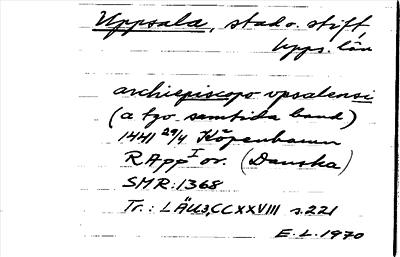 Uppsala, stad o. stift,
Upps. län
archiepiscopo vpsalensi
(a tgo. samtida hand)
1441 29/4 Köpenhamn
RApp I or. (Danska)
SMR:1368
Tr.: LÄU3,CCXXVIII s.221
E.L.1970